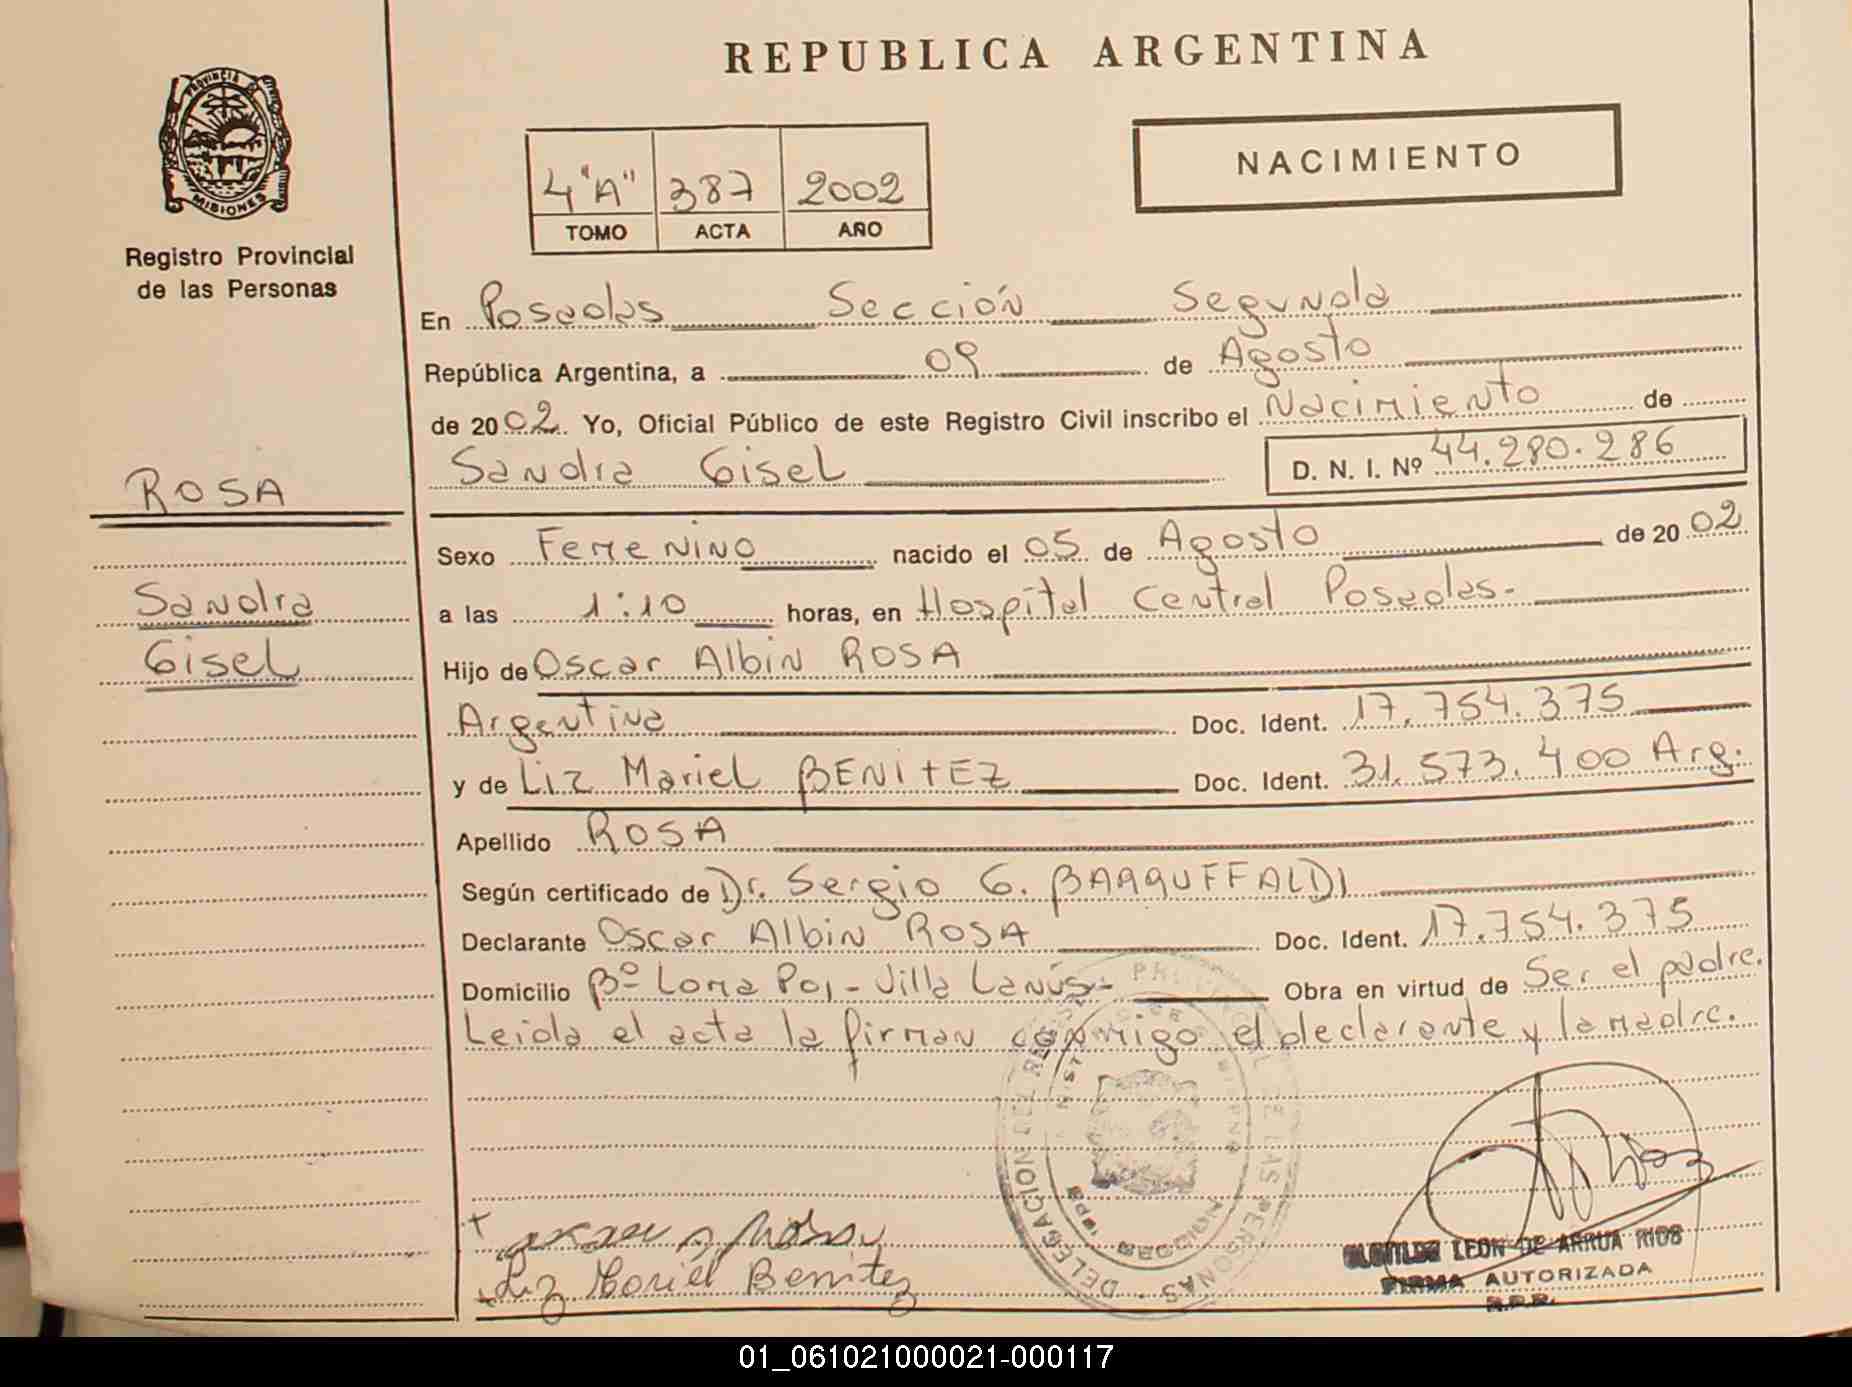 REPUBLICA ARGENTINA
PROVINCIA DE
MISIONES
Registro Provincial
de las Personas
4 "A" 387 2002
TOMO ACTA AÑO
NACIMIENTO
En Posadas Sección Segunda
República Argentina, a 09 de Agosto
de 2002. Yo, Oficial Público de este Registro Civil inscribo el Nacimiento de
Sandra Gisel D. N. I. Nº 44.280.286
ROSA
Sandra
Gisel
Sexo Femenino nacido el 05 de Agosto de 2002
a las 1:10 horas, en Hospital Central Posadas.-
Hijo de Oscar Albin ROSA
Argentina Doc. Ident. 17.754.375
y de Liz Mariel BENITEZ Doc. Ident. 31.573.400 Arg.
Apellido ROSA
Según certificado de Dr. Sergio G. BARQUFFALDI
Declarante Oscar Albin ROSA Doc. Ident. 17.754.375
Domicilio Bº Loma Poi - Villa Lanús- Obra en virtud de Ser el padre.
Leida el acta la firman conmigo el declarante y la madre.
DELEGACION DEL REGISTRO PROVINCIAL DE LAS PERSONAS
MISIONES
POSADAS
Liz Mariel Benitez
LEON DE ARRUA RIOS
FIRMA AUTORIZADA
R.P.P.
01_061021000021-000117